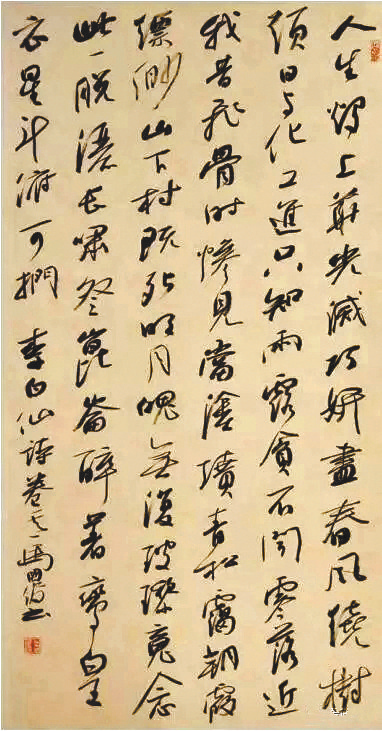 人生燭上華光滅巧妍盡春風繞樹
頭日与化工進只知雨露貪不聞零落近
我昔飛骨時慘見當塗墳青松靄朝霞
縹緲山下村既死明月魄無復玻瓈魂念
此一脫灑長嘯登崑崙醉著鸞皇
衣星斗俯可捫 李白仙詩卷之一 馬書